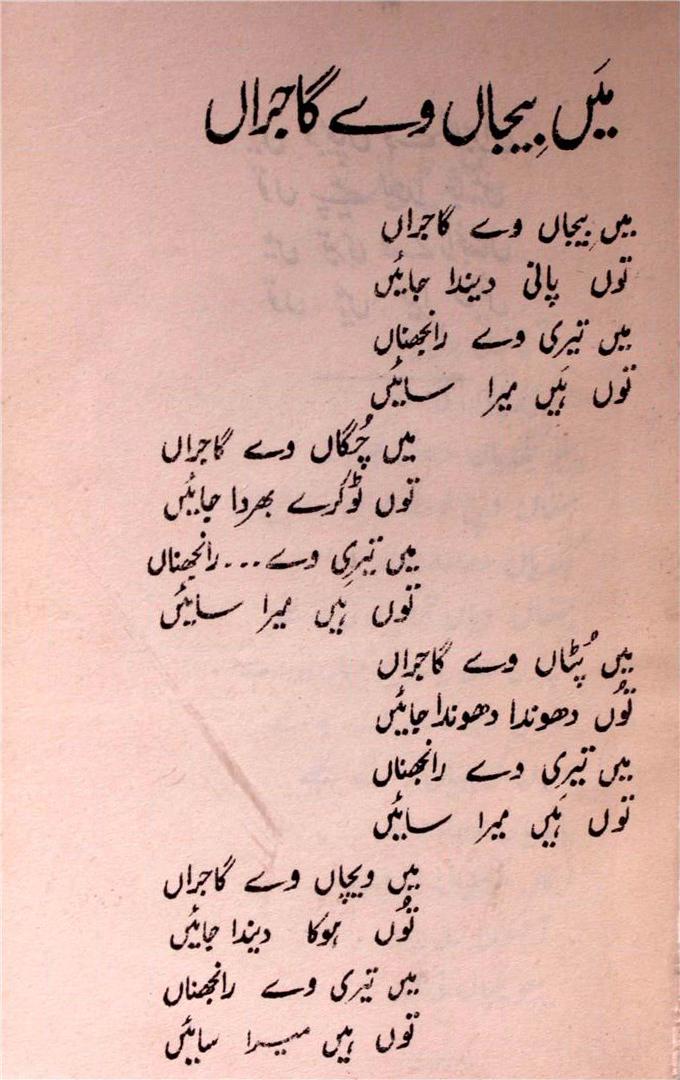 میَں بِیجاں وے گاجراں
میں بِیجاں وے گاجراں
توں پانی دیندا جائیں
میں تیری وے رانجھناں
توں ہَیں میرا سائیں
میں چُگاں وے گاجراں
توں ٹوکرے بھردا جائیں
میں تیری وے... رانجھناں
توں ہیں میرا سائیں
میں پُٹاں وے گاجراں
تُوں دھوندا دھوندا جائیں
میں تیری وے رانجھناں
توں ہَیں میرا سائیں
میں ویچاں وے گاجراں
تُوں ہوکا دیندا جائیں
میں تیری وے رانجھناں
توں ہیں میرا سائیں